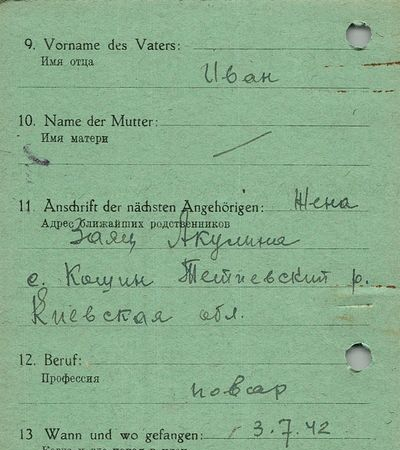 9. Vorname des Vaters:
Имя отца
Иван
10. Name der Mutter:
Имя матери
11. Anschrift der nächsten Angehörigen: Жена
Адрес ближайших родственников
Заяц Акулина
с. Кошин Тетиевский р.
Киевская обл.
12. Beruf:
Профессия
повар
13 Wann und wo gefangen: 3.7.42